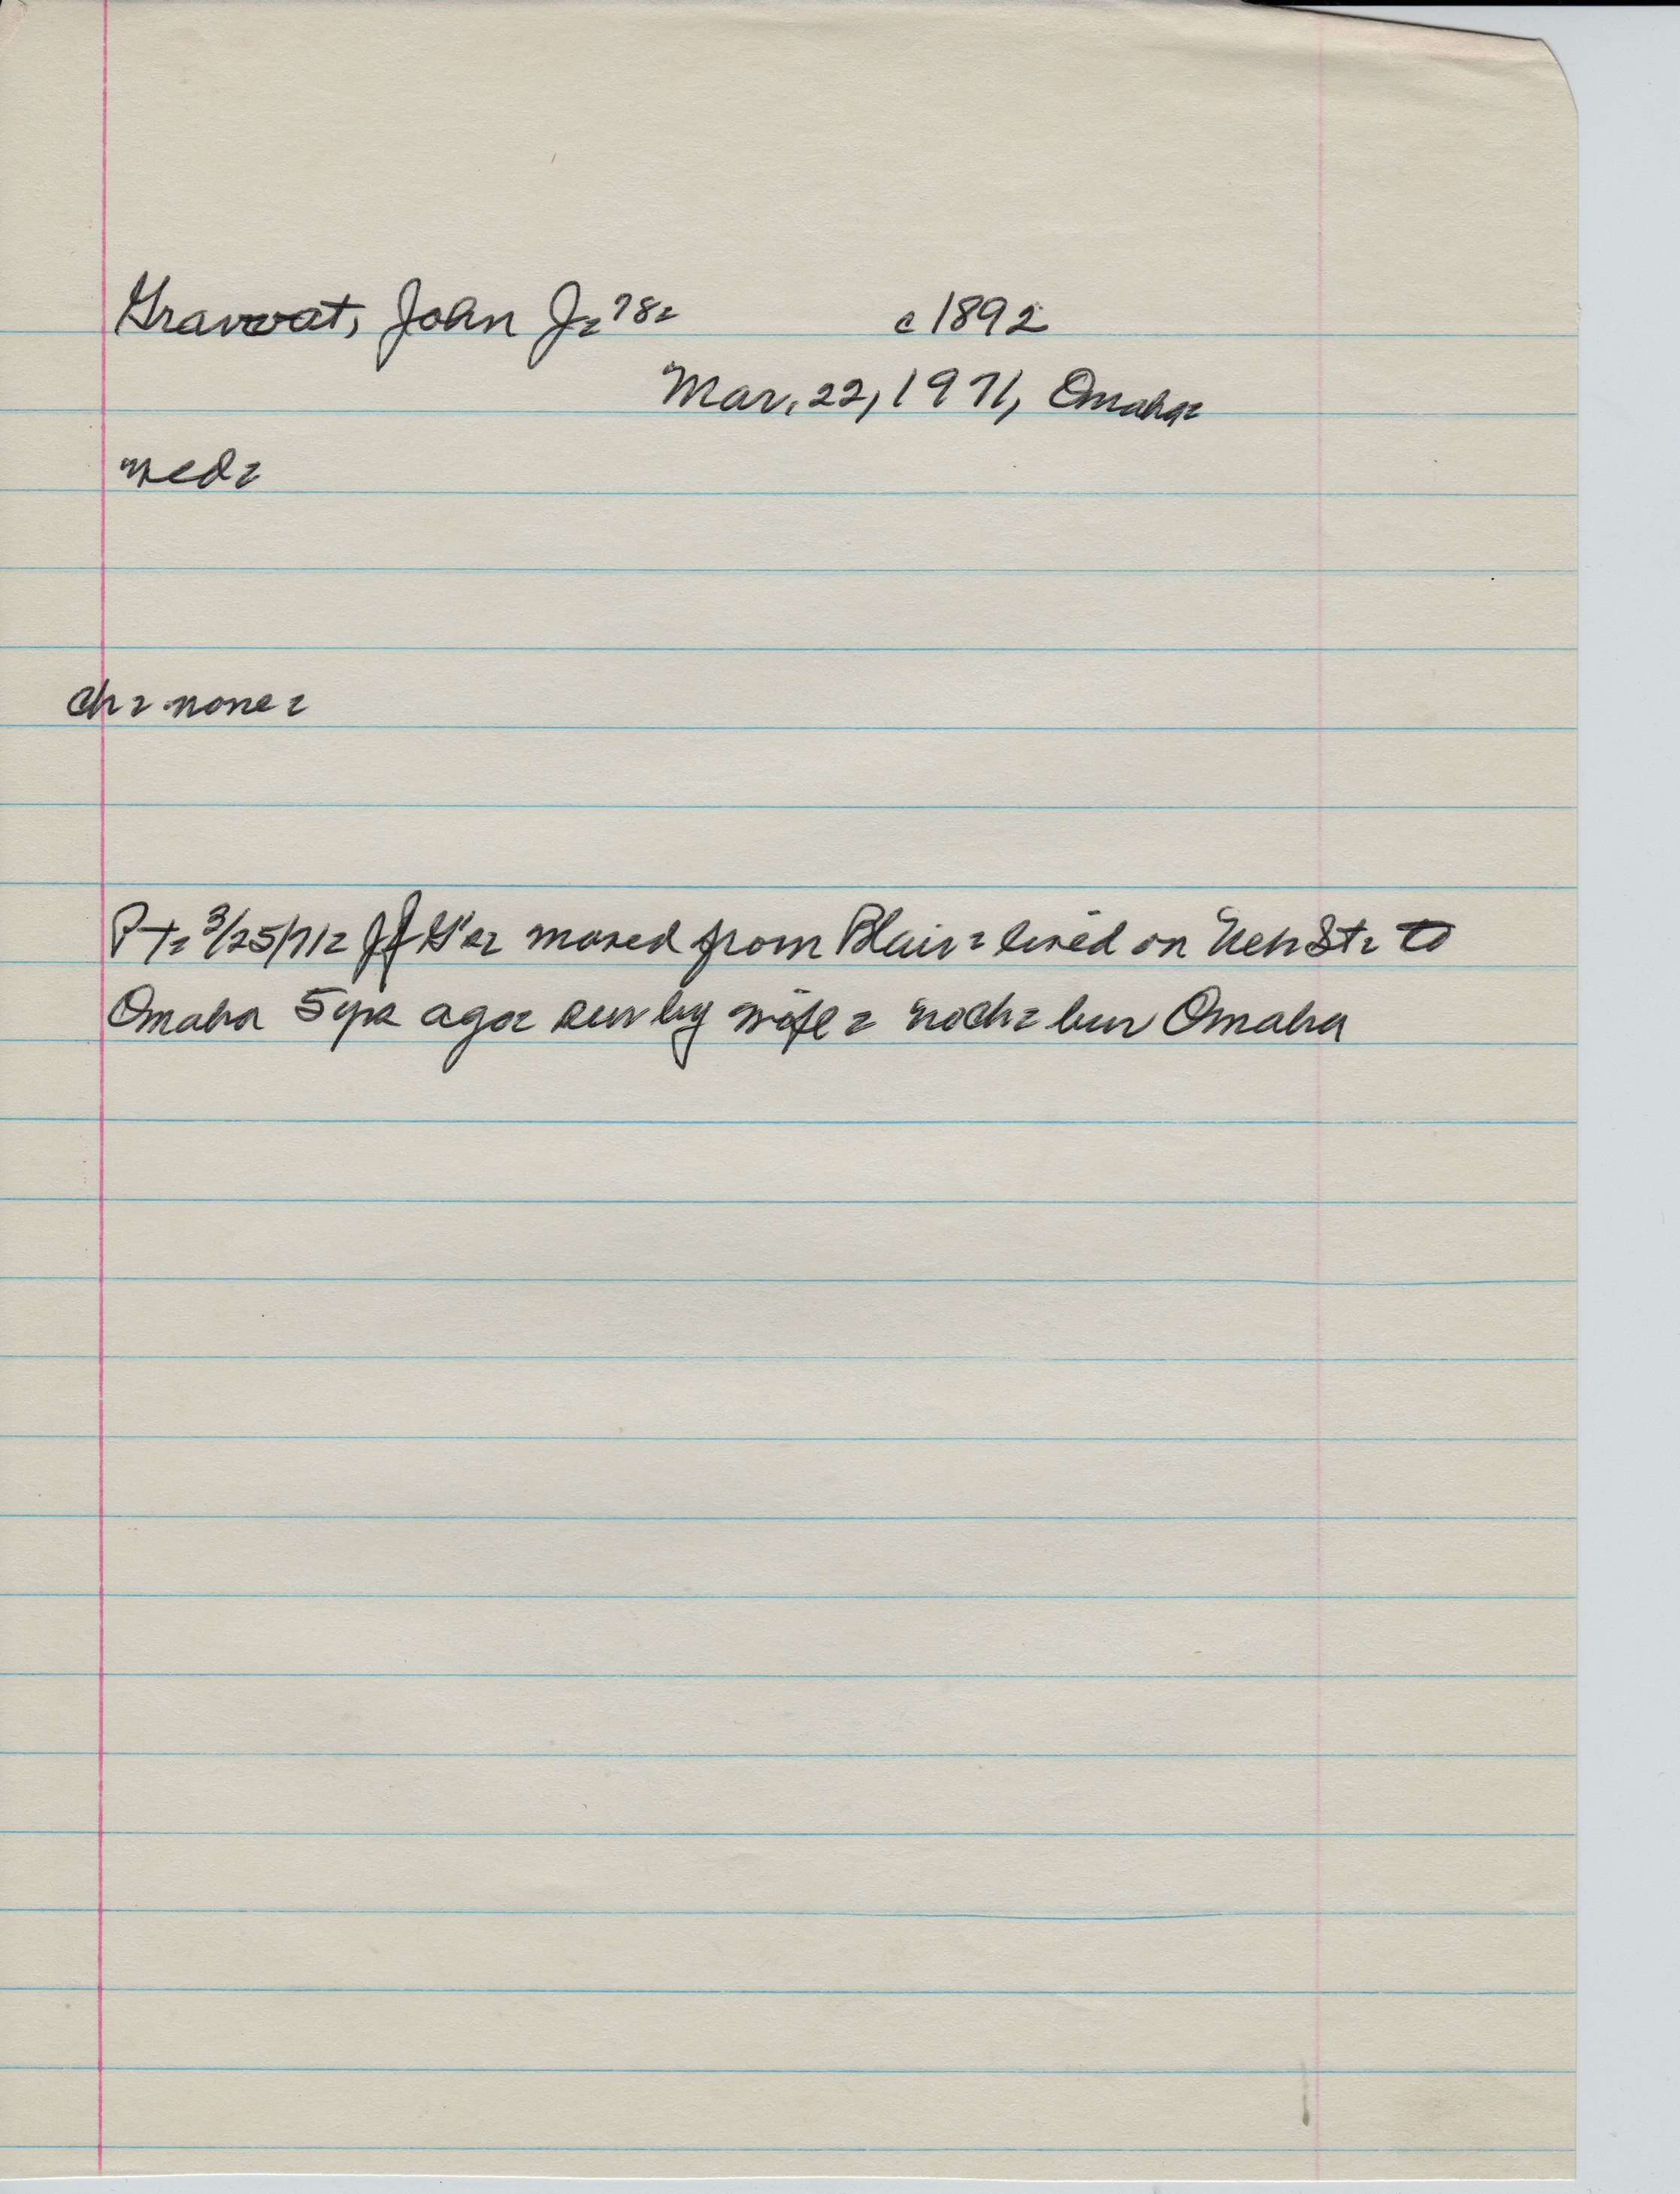 Gravvat, John J. 78. c 1892
Mar. 22, 1971, Omaha.
wed.
Ch. none.
PT. 3/25/71. JJ G's. moved from Blair. lived on Neb St. to
Omaha 5 yrs ago. sur by wife. no ch. bur Omaha